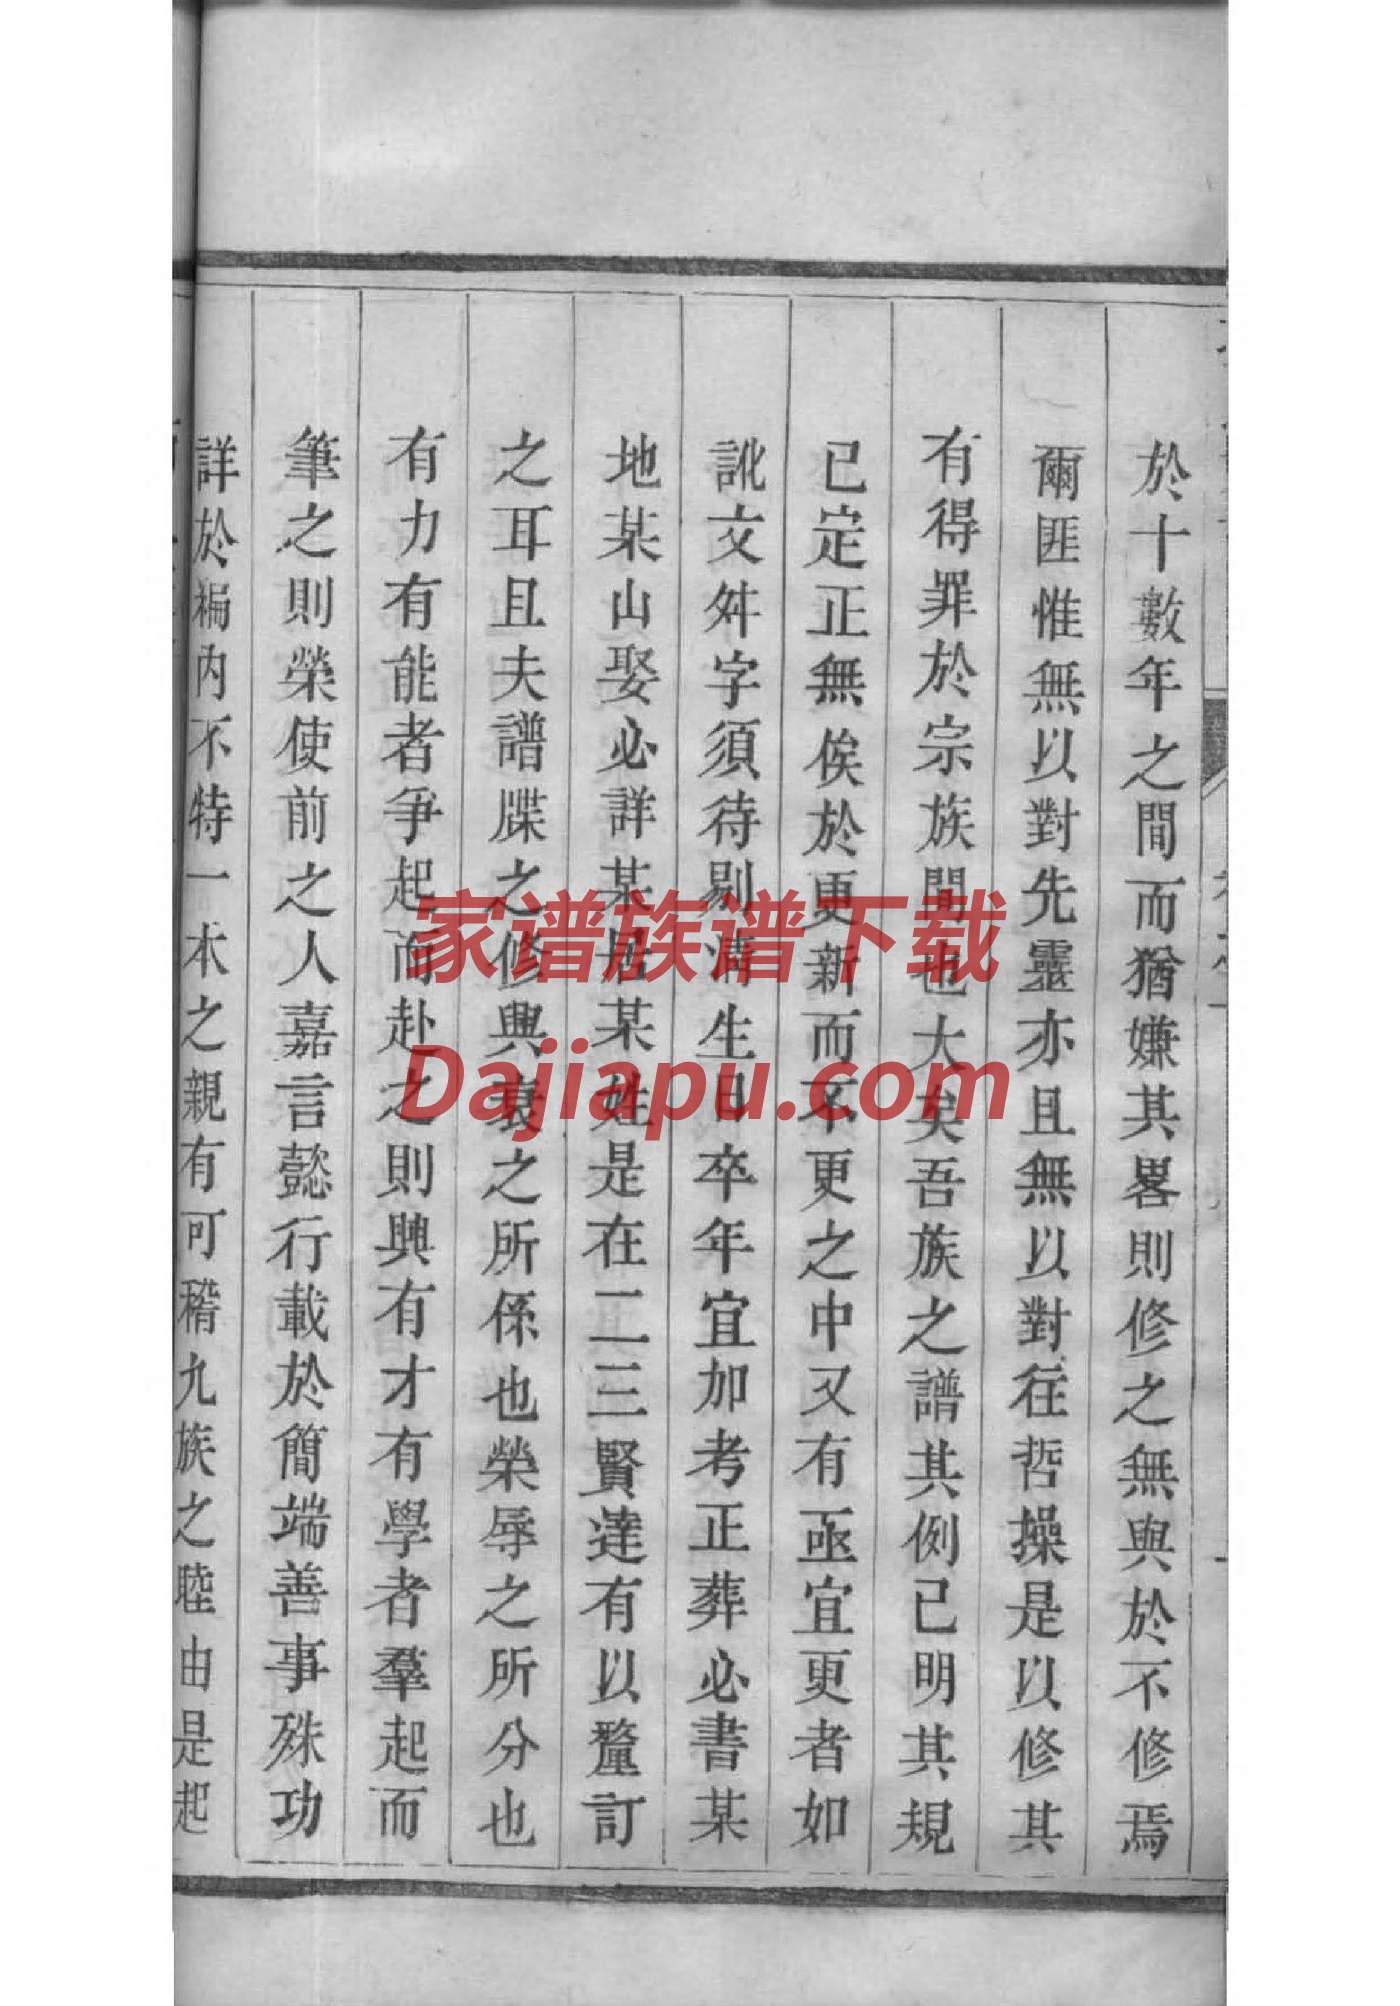 於十數年之間而猶嫌其畧則修之無與於不修焉
爾匪惟無以對先靈亦且無以對往哲操是以修其
有得罪於宗族間也大矣吾族之譜其例已明其規
已定正無俟於更新而不更之中又有亟宜更者如
訛文舛字須待剔清生日卒年宜加考正葬必書某
地某山娶必詳某居某姓是在二三賢達有以釐訂
之耳且夫譜牒之修興衰之所係也榮辱之所分也
有力有能者爭起而赴之則興有才有學者羣起而
筆之則榮使前之人嘉言懿行載於簡端善事殊功
詳於編內不特一本之親有可稽九族之睦由是起
家谱族谱下载
Dajiapu.com